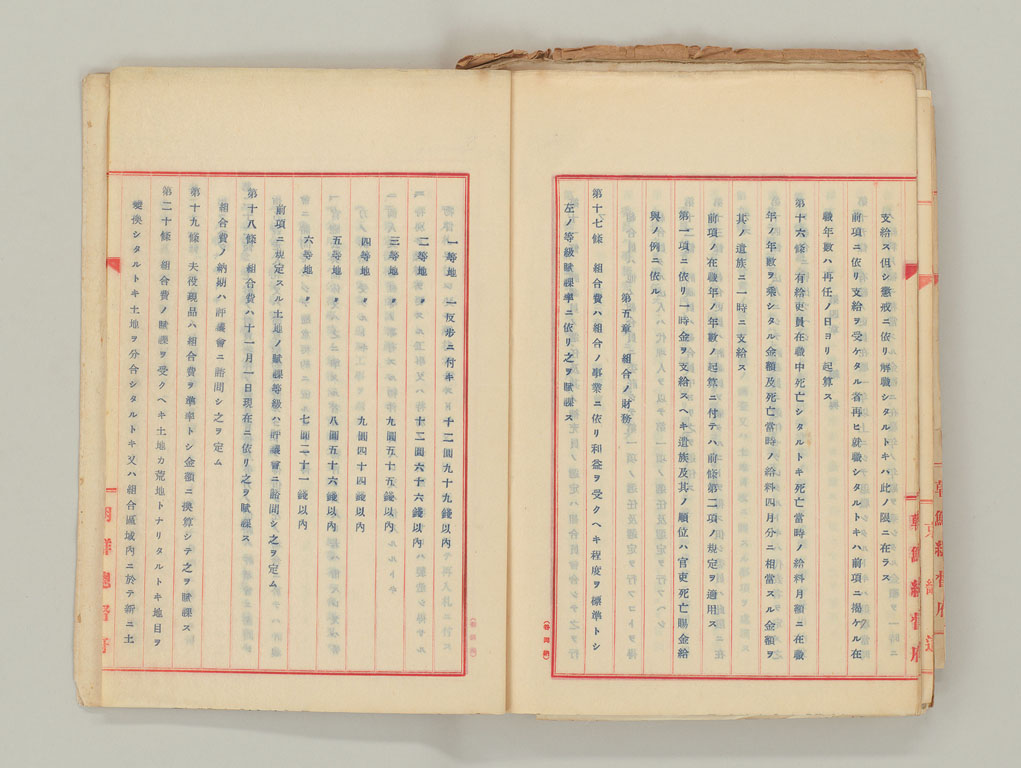 支給ス但シ懲戒ニ依リ解職シタルトキハ此ノ限ニ在ラス
前項ニ依リ支給ヲ受ケタル者再ヒ就職シタルトキハ前項ニ揭ケル在
職年數ハ再任ノ日ヨリ起算ス
第十六條 有給吏員在職中死亡シタルトキ死亡當時ノ給料月額ニ在職
年ノ年數ヲ乘シタル金額及死亡當時ノ給料四月分ニ相當スル金額ヲ
其ノ遺族ニ一時ニ支給ス
前項ノ在職年ノ年數ノ起算ニ付テハ前條第二項ノ規定ヲ適用ス
第一項ニ依リ一時金ヲ支給スヘキ遺族及其ノ順位ハ官吏死亡賜金給
與ノ例ニ依ル
第五章 組合ノ財務
第十七條 組合費ハ組合ノ事業ニ依リ利益ヲ受クヘキ程度ヲ標準トシ
左ノ等級賦課率ニ依リ之ヲ賦課ス
朝鮮總督府
一等地 一反步ニ付キ 十二圓九十九錢以內
二等地 〃 十二圓六十六錢以內
三等地 〃 九圓五十五錢以內
四等地 〃 九圓四十四錢以內
五等地 〃 八圓五十六錢以內
六等地 〃 七圓二十一錢以內
前項ニ規定スル土地ノ賦課等級ハ評議會ニ諮問シ之ヲ定ム
第十八條 組合費ハ十一月一日現在ニ依リ之ヲ賦課ス
組合費ノ納期ハ評議會ニ諮問シ之ヲ定ム
第十九條 夫役現品ハ組合費ヲ準率トシ金額ニ換算シテ之ヲ賦課ス
第二十條 組合費ノ賦課ヲ受クヘキ土地カ荒地トナリタルトキ地目ヲ
變換シタルトキ土地ヲ分合シタルトキ又ハ組合區域內ニ於テ新ニ土
朝鮮總督府